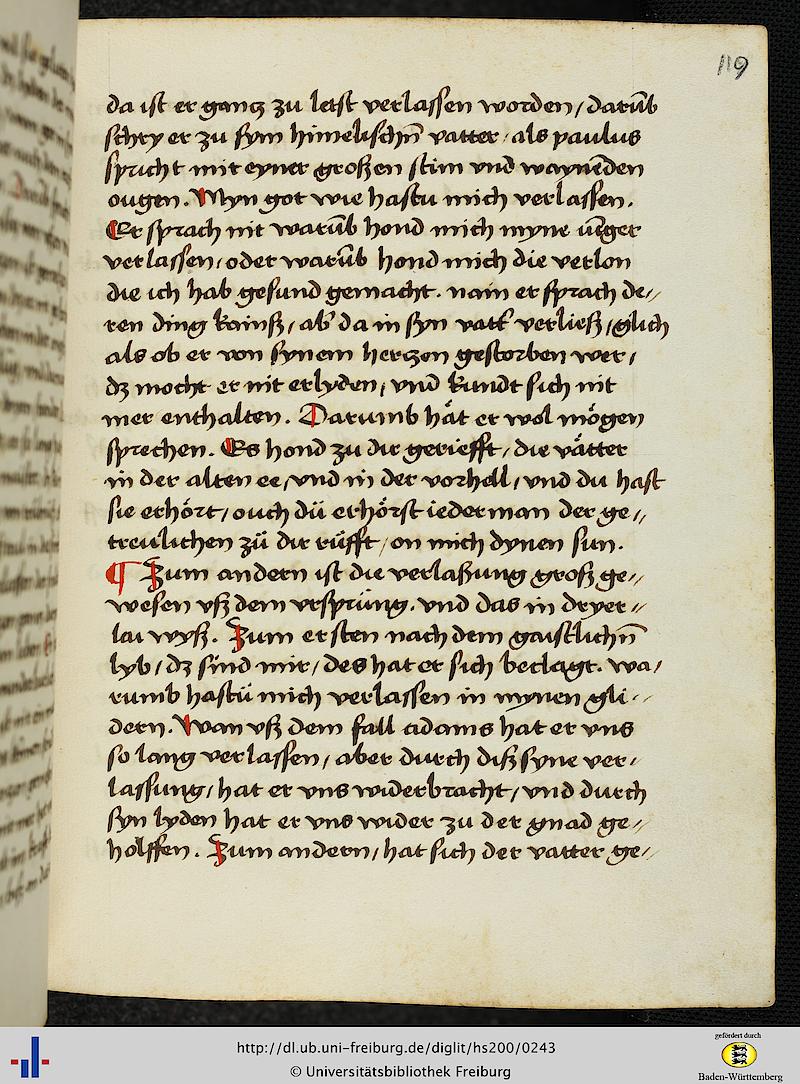 119
da ist er gantz zu letst verlassen worden / darūb
schry er zu sym himelischn̄ vatter / als paulus
spricht mit eyner großen stim vnd waynēden
ougen. Myn got wie hastu mich verlassen.
Er sprach nit warūb hond mich myne iūger
verlassen / oder warūb hond mich die verlon
die ich hab gesund gemacht. nain er sprach de⸗
ren ding kainß / ab' da in syn vatt' verließ / glich
als ob er von synem hertzen gestorben wer /
dz mocht er nit erlyden / vnd kundt sich nit
mer enthalten. Darumb hät er wol mögen
sprechen. Es hond zu dir geriefft / die vätter
in der alten ee / vnd in der vorhell / vnd du hast
sie erhört / ouch dü erhörst iederman der ge⸗
treulichen zü dir rüfft / on mich dynen sun.
¶ Zum andern ist die verlaßung groß ge⸗
wesen vß dem vrsprüng. vnd das in dryer⸗
lai wyß. Zum ersten nach dem gaistlichn̄
lyb / dz sind mir / des hat er sich beclagt. wa⸗
rumb hastü mich verlassen in mynen gli⸗
dern. Wan vß dem fall adams hat er vns
so lang verlassen / aber durch diß syne ver⸗
lassung / hat er vns widerbracht / vnd durch
syn lyden hat er vns wider zu der gnad ge⸗
holffen. Zum andern / hat sich der vatter ge⸗
http://dl.ub.uni-freiburg.de/diglit/hs200/0243
© Universitätsbibliothek Freiburg
gefördert durch
Baden-Württemberg